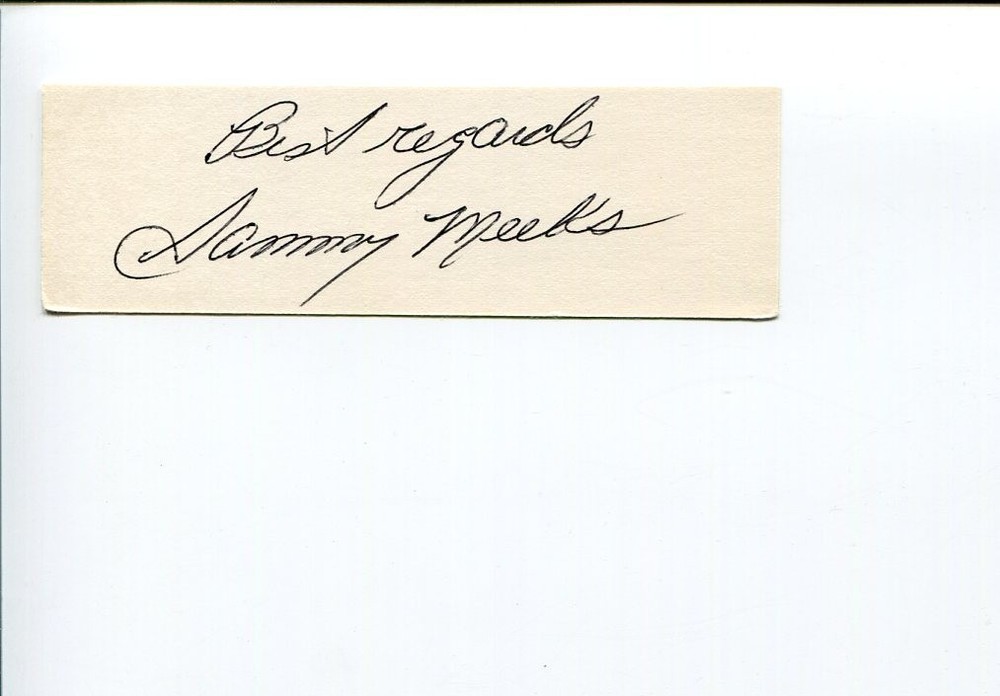 Best regards
Sammy Meeks